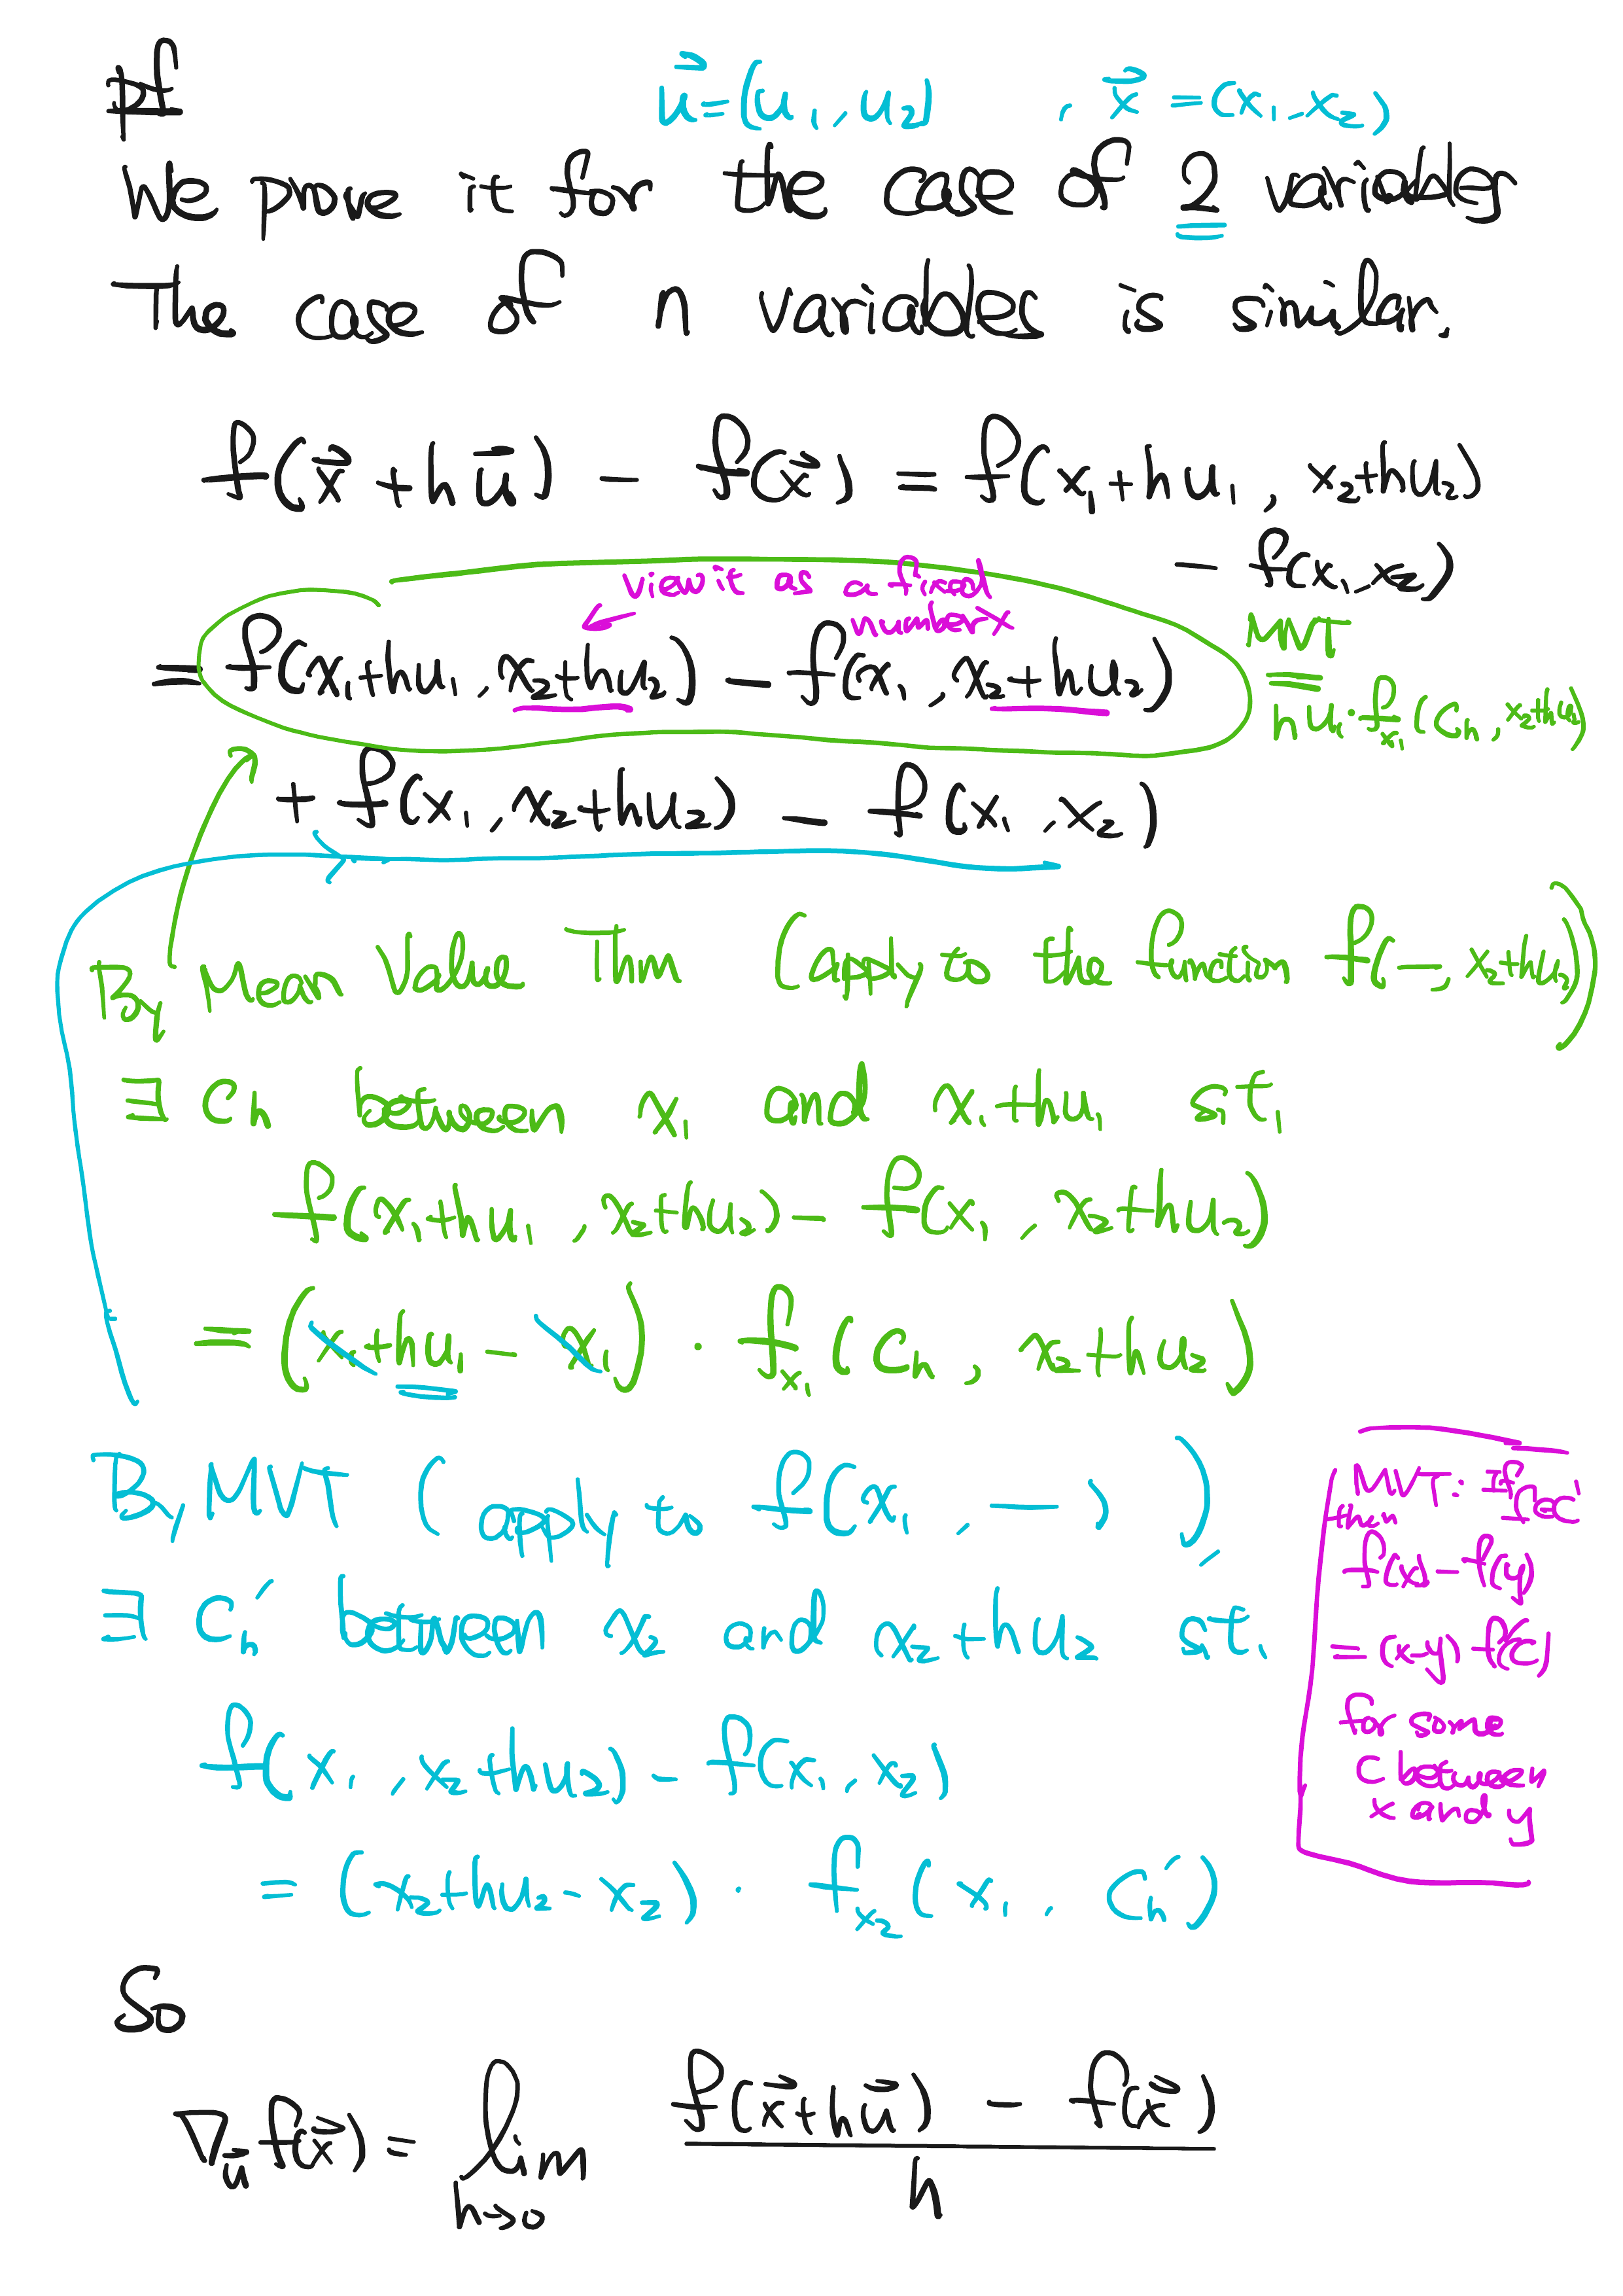 pf
u⃗=(u₁,u₂) , x⃗ =(x₁,x₂)
We prove it for the case of 2 variables
The case of n variables is similar.
f(x⃗+hu⃗) − f(x⃗) = f(x₁+hu₁, x₂+hu₂)
− f(x₁,x₂)
view it as a fixed
number
= f(x₁+hu₁,x₂+hu₂) − f(x₁,x₂+hu₂)
MVT
=
hu₁·f_x₁(c_h,x₂+hu₂)
+ f(x₁,x₂+hu₂) − f(x₁,x₂)
By Mean Value Thm (apply to the function f(—,x₂+hu₂))
∃ c_h between x₁ and x₁+hu₁ s.t.
f(x₁+hu₁,x₂+hu₂) − f(x₁,x₂+hu₂)
= (x₁+hu₁−x₁) · f_x₁(c_h, x₂+hu₂)
By MVT (apply to f(x₁,—)),
∃ c_h′ between x₂ and x₂+hu₂ st.
f(x₁,x₂+hu₂) − f(x₁,x₂)
= (x₂+hu₂−x₂) · f_x₂(x₁, c_h′)
MVT: If f∈C¹
then
f(x)−f(y)
= (x−y) f′(c)
for some
c between
x and y
So
∇_u⃗ f(x⃗) = lim h→0 f(x⃗+hu⃗) − f(x⃗) / h